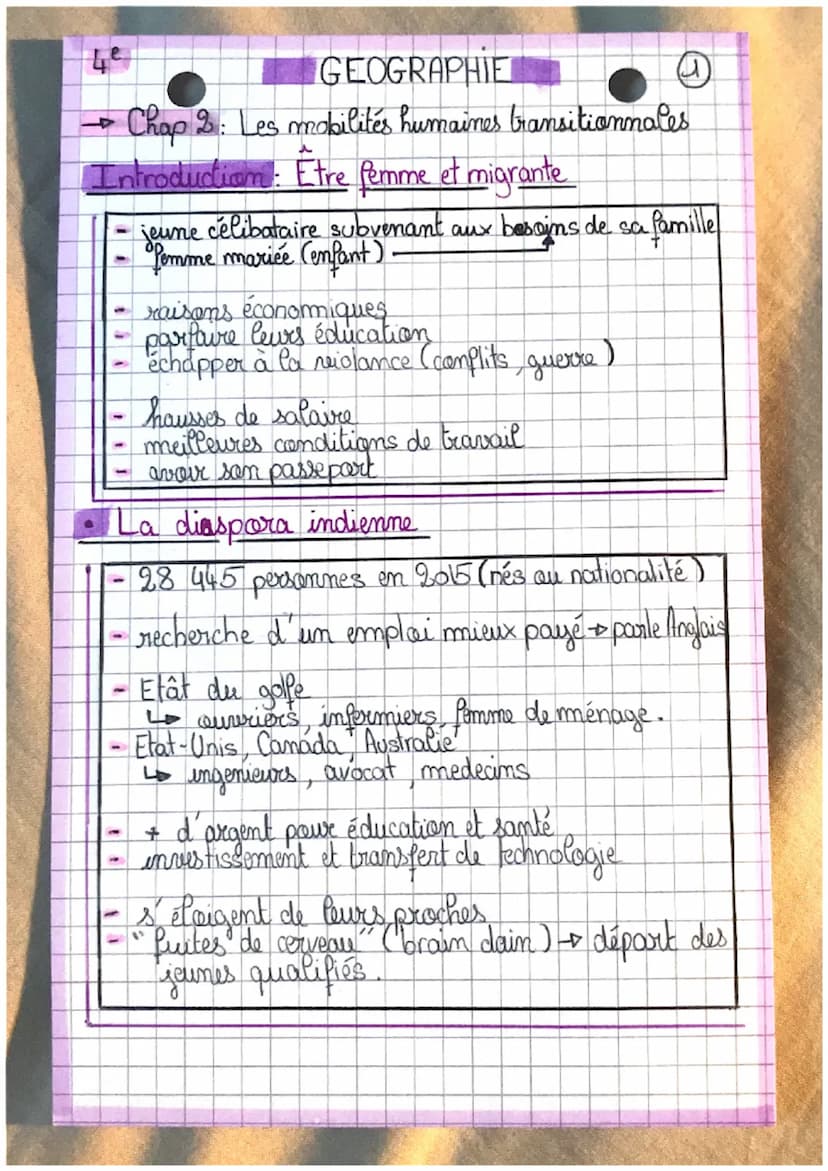 4e
GEOGRAPHIE
1
→ Chap 2 : Les mobilités humaines transitionnales
Introduction : Être femme et migrante
- jeune célibataire subvenant aux besoins de sa famille
- femme mariée (enfant)
- raisons économiques
- parfaire leurs éducation
- échapper à la violance (conflits, guerre)
- hausses de salaire
- meilleures conditions de travail
- avoir son passeport
• La diaspora indienne
- 28 445 personnes en 2015 (nés ou nationalité)
- recherche d'un emploi mieux payé → parle Anglais
- Etât du golfe
↳ ouvriers, infirmiers, femme de ménage.
- Etat-Unis, Canada, Australie
↳ ingenieurs, avocat, medecins
- + d'argent pour éducation et santé
- investissement et transfert de technologie
- s'éloigent de leurs proches
- "fuites de cerveau" (brain dain) → départ des
jeunes qualifiés.